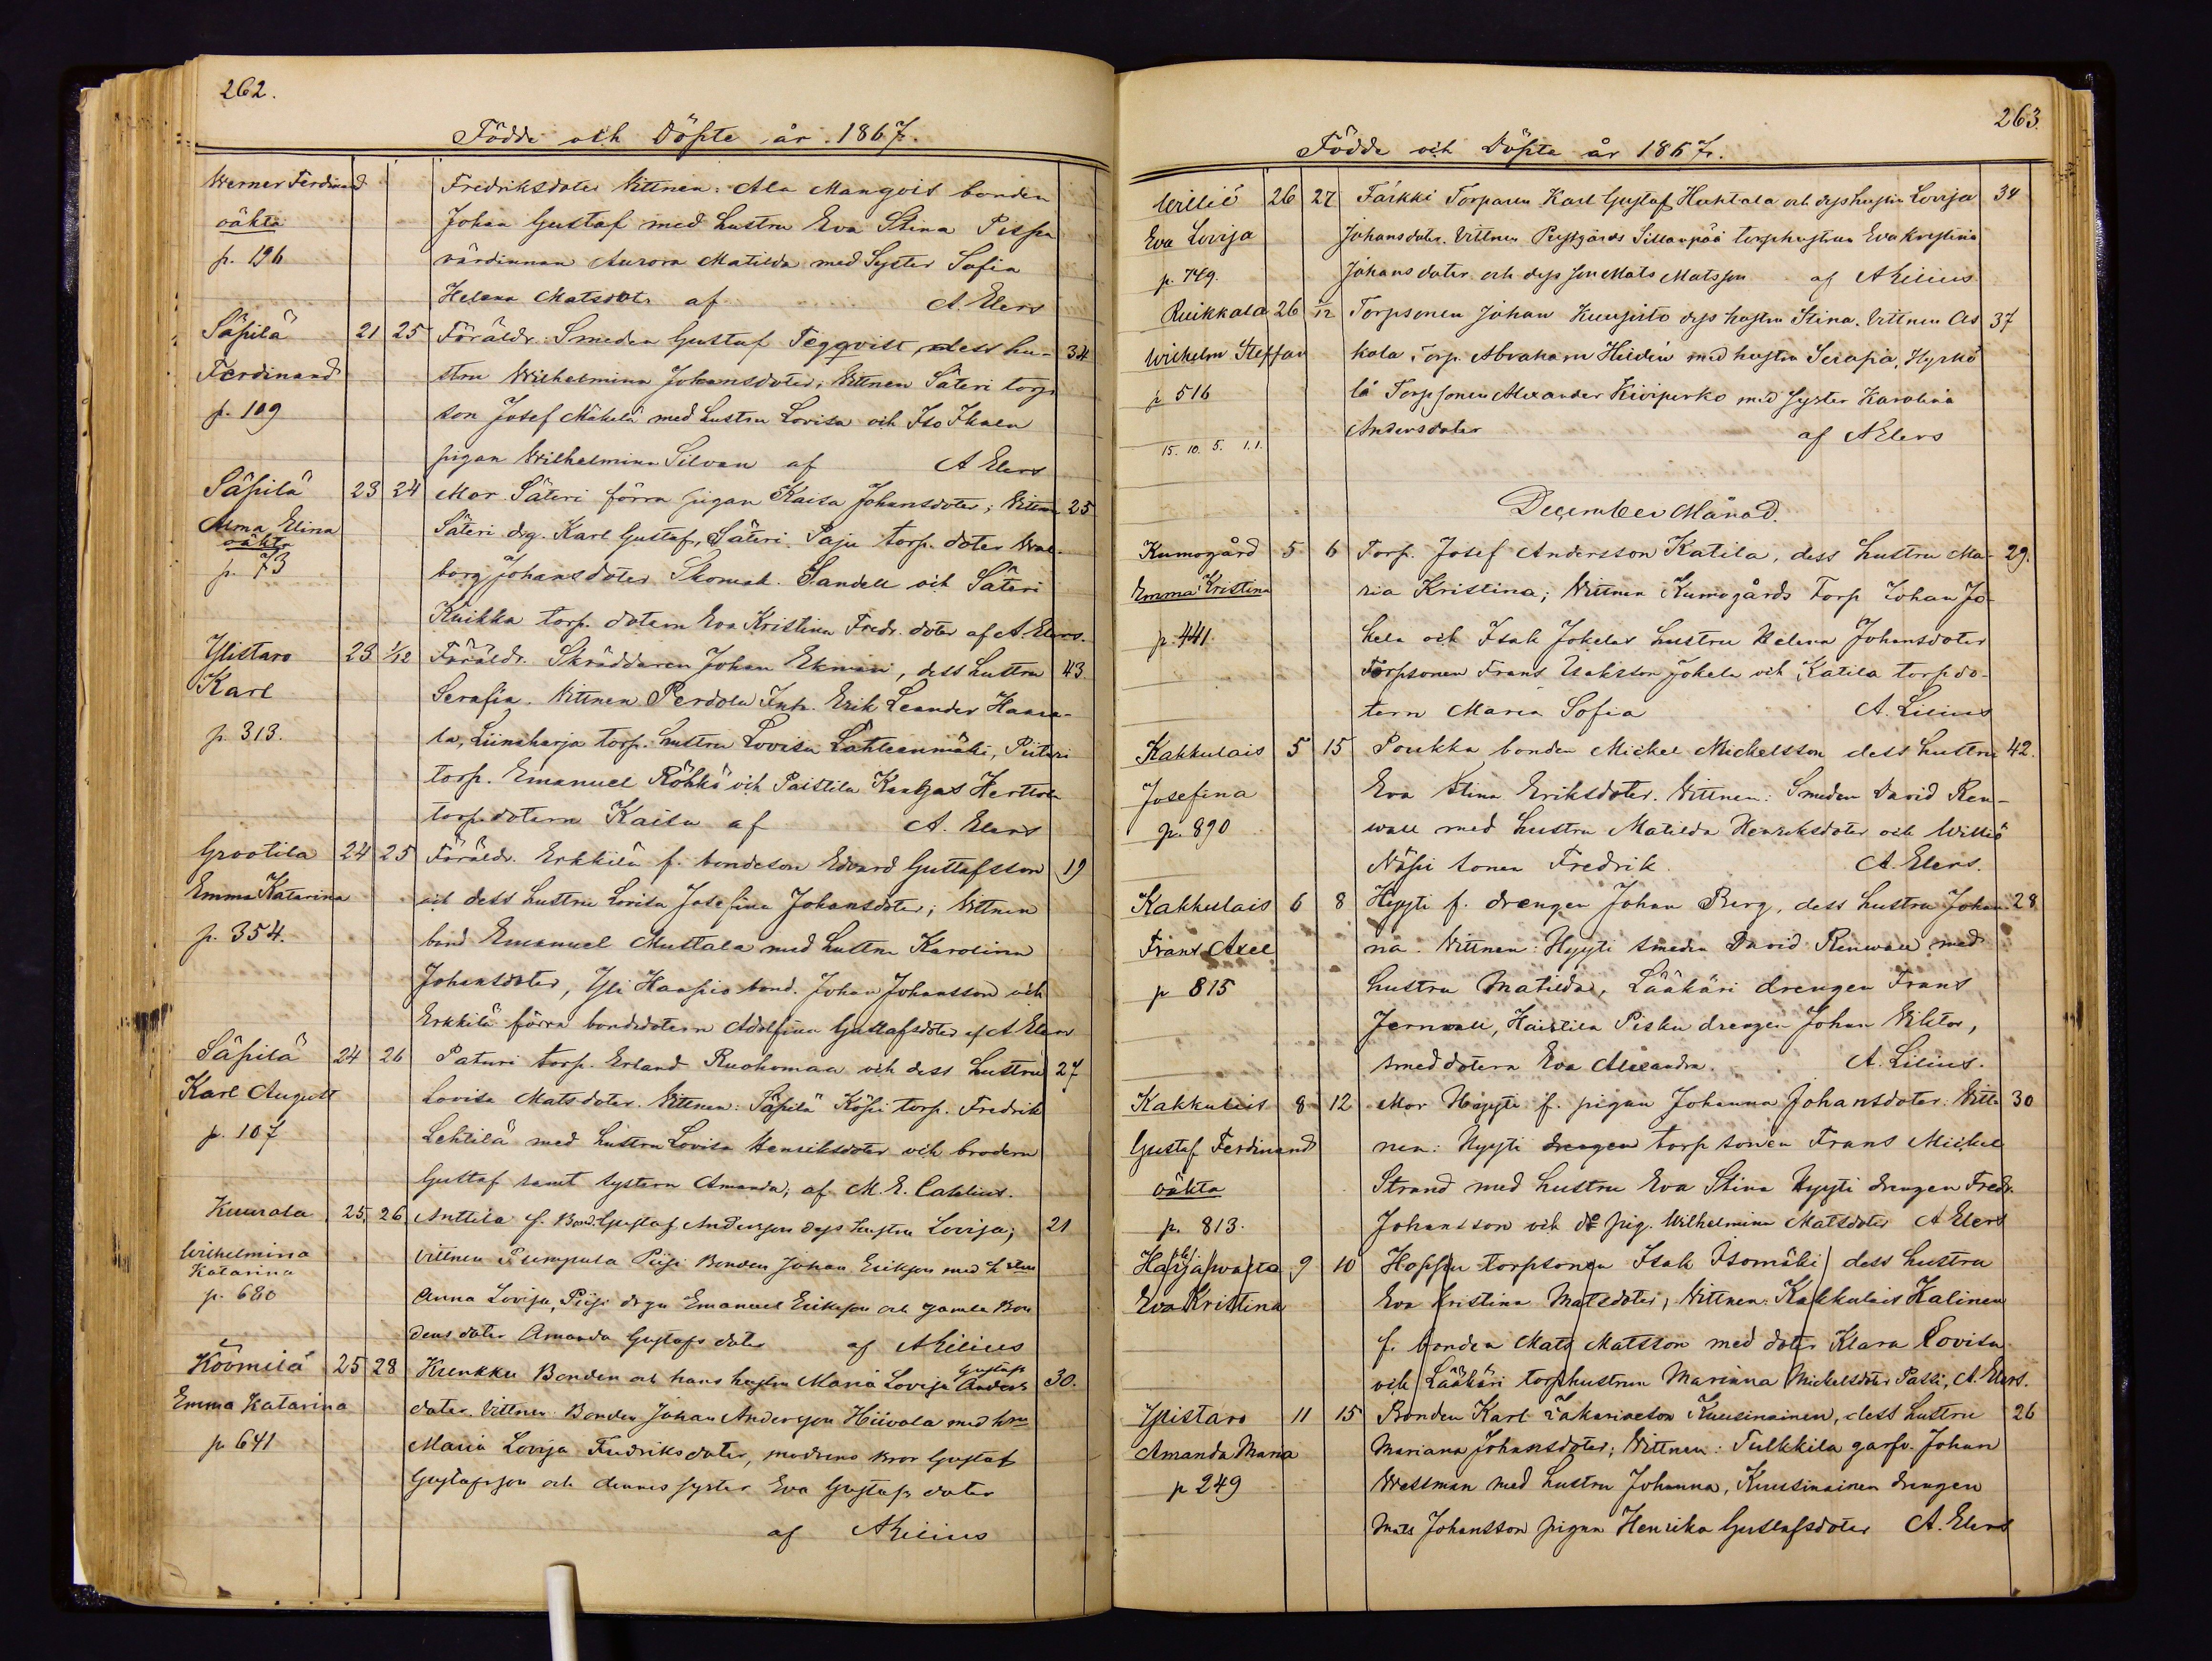 262.
Födde och Döpte år 1867.
Werner Ferdinand
oäkta
p. 196
Fredriksdoter Vittnen: Ala Mangois bonden
Johan Gustaf med hustru Eva Stina Pispa
värdinnan Aurora Matilda med Syster Sofia
Helena Matsdoter af A. Elers
Säpilä 21 25 Föräldr. Smeden Gustaf Tegqvist, dess hu- 34
Ferdinand stru Wilhelmina Johansdoter; Vittnen Säteri torp.
p. 109 son Josef Mäkelä med hustru Lovisa och Iso Ikala
pigan Wilhelmina Silvan af A Elers
Säpilä 23 24 Mor. Säteri förra pigan Kaisa Johansdoter; Vittnen 25
Alma Elina Säteri drg. Karl Gustaf, Säteri Paju torp. doter Wal-
oäkta
p. 73 borg Johansdoter Skomak. Sandell och Säteri
Kuikka torp. dotern Eva Kristina Fredr. doter af A. Elers.
Ylistaro 23 1/12 Föräldr. Skräddaren Johan Ekman, dess hustru 43
Karl Serafia. Vittnen Perdola Inh. Erik Leander Haara-
p. 313. la, Liinaharja torp. hustru Lovisa Lähteenmäki, Piitari
torp. Emanuel Röhkä och Paistila Kangas Herttola
torp. dotern Kaisa af A. Elers
Grootila 24 25 Föräldr. Erkkilä f. bondeson Edvard Gustafsson 19
Emma Katarina och dess hustru Lovisa Josefina Johansdoter; Vittnen
p. 354. bond Emanuel Mustala med hustru Karolina
Johansdoter, Yli Haapio bond. Johan Johansson och
Erkkilä förra bondedotern Adolfina Gustafsdoter af A Elers
Säpilä 24 26 Paturi torp. Erland Ruohomaa och dess hustru 27
Karl August Lovisa Matsdoter. Vittnen: Säpilä Köpi torp. Fredrik
p. 107 Lehtilä med hustru Lovisa Henriksdoter och brodern
Gustaf samt systern Amanda; af M. E. Cahlius.
Kuurola 25 26 Anttila f. Bond. Gustaf Andersson dess hustru Lovisa; 21
Wilhelmina
Katarina
p. 680
Vittnen Pumpula Piisi Bonden Johan Eriksson med hstru
Anna Lovisa, Piisi drgn Emanuel Eriksson och gamla Bon
dens doter Amanda Gustafs doter af A Lilius
Köömilä 25 28 Kunkku Bonden och hans hustru Maria Lovisa Gustafs Anders 30.
Emma Katarina doter. Vittnen Bonden Johan Andersson Hiivola med hru
p 641 Maria Lovisa Fredriksdoter, modrens bror Gustaf
Gustafsson och dennes syster Eva Gustafs doter
af A Lilius
263
Födde och Döpte år 1867.
Williö 26 27 Färkki Torparen Karl Gustaf Huhtala och dess hustru Lovisa 34
Eva Lovisa Johansdoter. Vittnen Prestgårds Sillanpää torphustrun Eva Kristina
p. 749. Johansdoter och dess son Mats Matsson af A Lilius
Ruikkala 26 1/12 Torpsonen Johan Kuusisto dess hustru Stina. Vittnen As 37
Wilhelm Steffan kola Torp. Abraham Hiiden med hustru Serafia, Hyrkö
p 516 lä Torpsonen Alexander Kiviperko med syster Karolina
Andersdoter af A Elers
15. 10. 5. 1.1.
December Månad.
Kumogård 5 6 Torp. Josef Andersson Katila, dess hustru Ma- 29.
Emma Kristina ria Kristina; Vittnen Kumogårds Torp Johan Jo-
p. 441. kela och Isak Jokelas hustru Helena Johansdoter
Torpsonen Frans Isaksson Jokela och Katila torpdo-
tern Maria Sofia A. Lilius
Kakkulais 5 15 Poukka bonden Mickel Mickelsson dess hustru 42.
Josefina Eva Stina Eriksdoter. Vittnen: Smeden David Ren-
p. 890 wall med hustru Matilda Henriksdoter och Williö
Näpi sonen Fredrik A. Elers.
Kakkulais 6 8 Hyyti f. drengen Johan Berg, dess hustru Johan- 28
Frans Axel na. Vittnen: Hyyti smeden David Renwall med
p 815 hustru Matilda, Lääkäri drengen Frans
Jernwall, Haistila Pisku drengen Johan Viktor,
smeddotern Eva Alexandra. A. Lilius.
Kakkulais 8 12 Mor Hyyti f. pigan Johanna Johansdoter Vitt- 30
Gustaf Ferdinand nen: Hyyti drengen torpsonen Frans Mickel
oäkta Strand med hustru Eva Stina Hyyti drengen Fredr.
p. 813. Johansson och do pig. Wilhelmina Matsdoter A Elers
Harjavalta 9 10 Hoppu torpsonen Isak Isomäki dess hustru
Eva Kristina Eva Kristina Matsdoter; Vittnen: Kakkulais Kalinen
f. bonden Mats Matsson med doter Klara Lovisa
och Lääkäri torphustrun Mariana Mickelsdoter Passi, A. Elers.
Ylistaro 11 15 Bonden Karl Zakariasson Kuusinainen, dess hustru 26
Amanda Maria Mariana Johansdoter; Vittnen: Tulkkila garfv. Johan
p 249 Wessman med hustru Johanna, Kuusinainen drengen
Mats Johansson pigan Henrika Gustafsdoter A. Elers